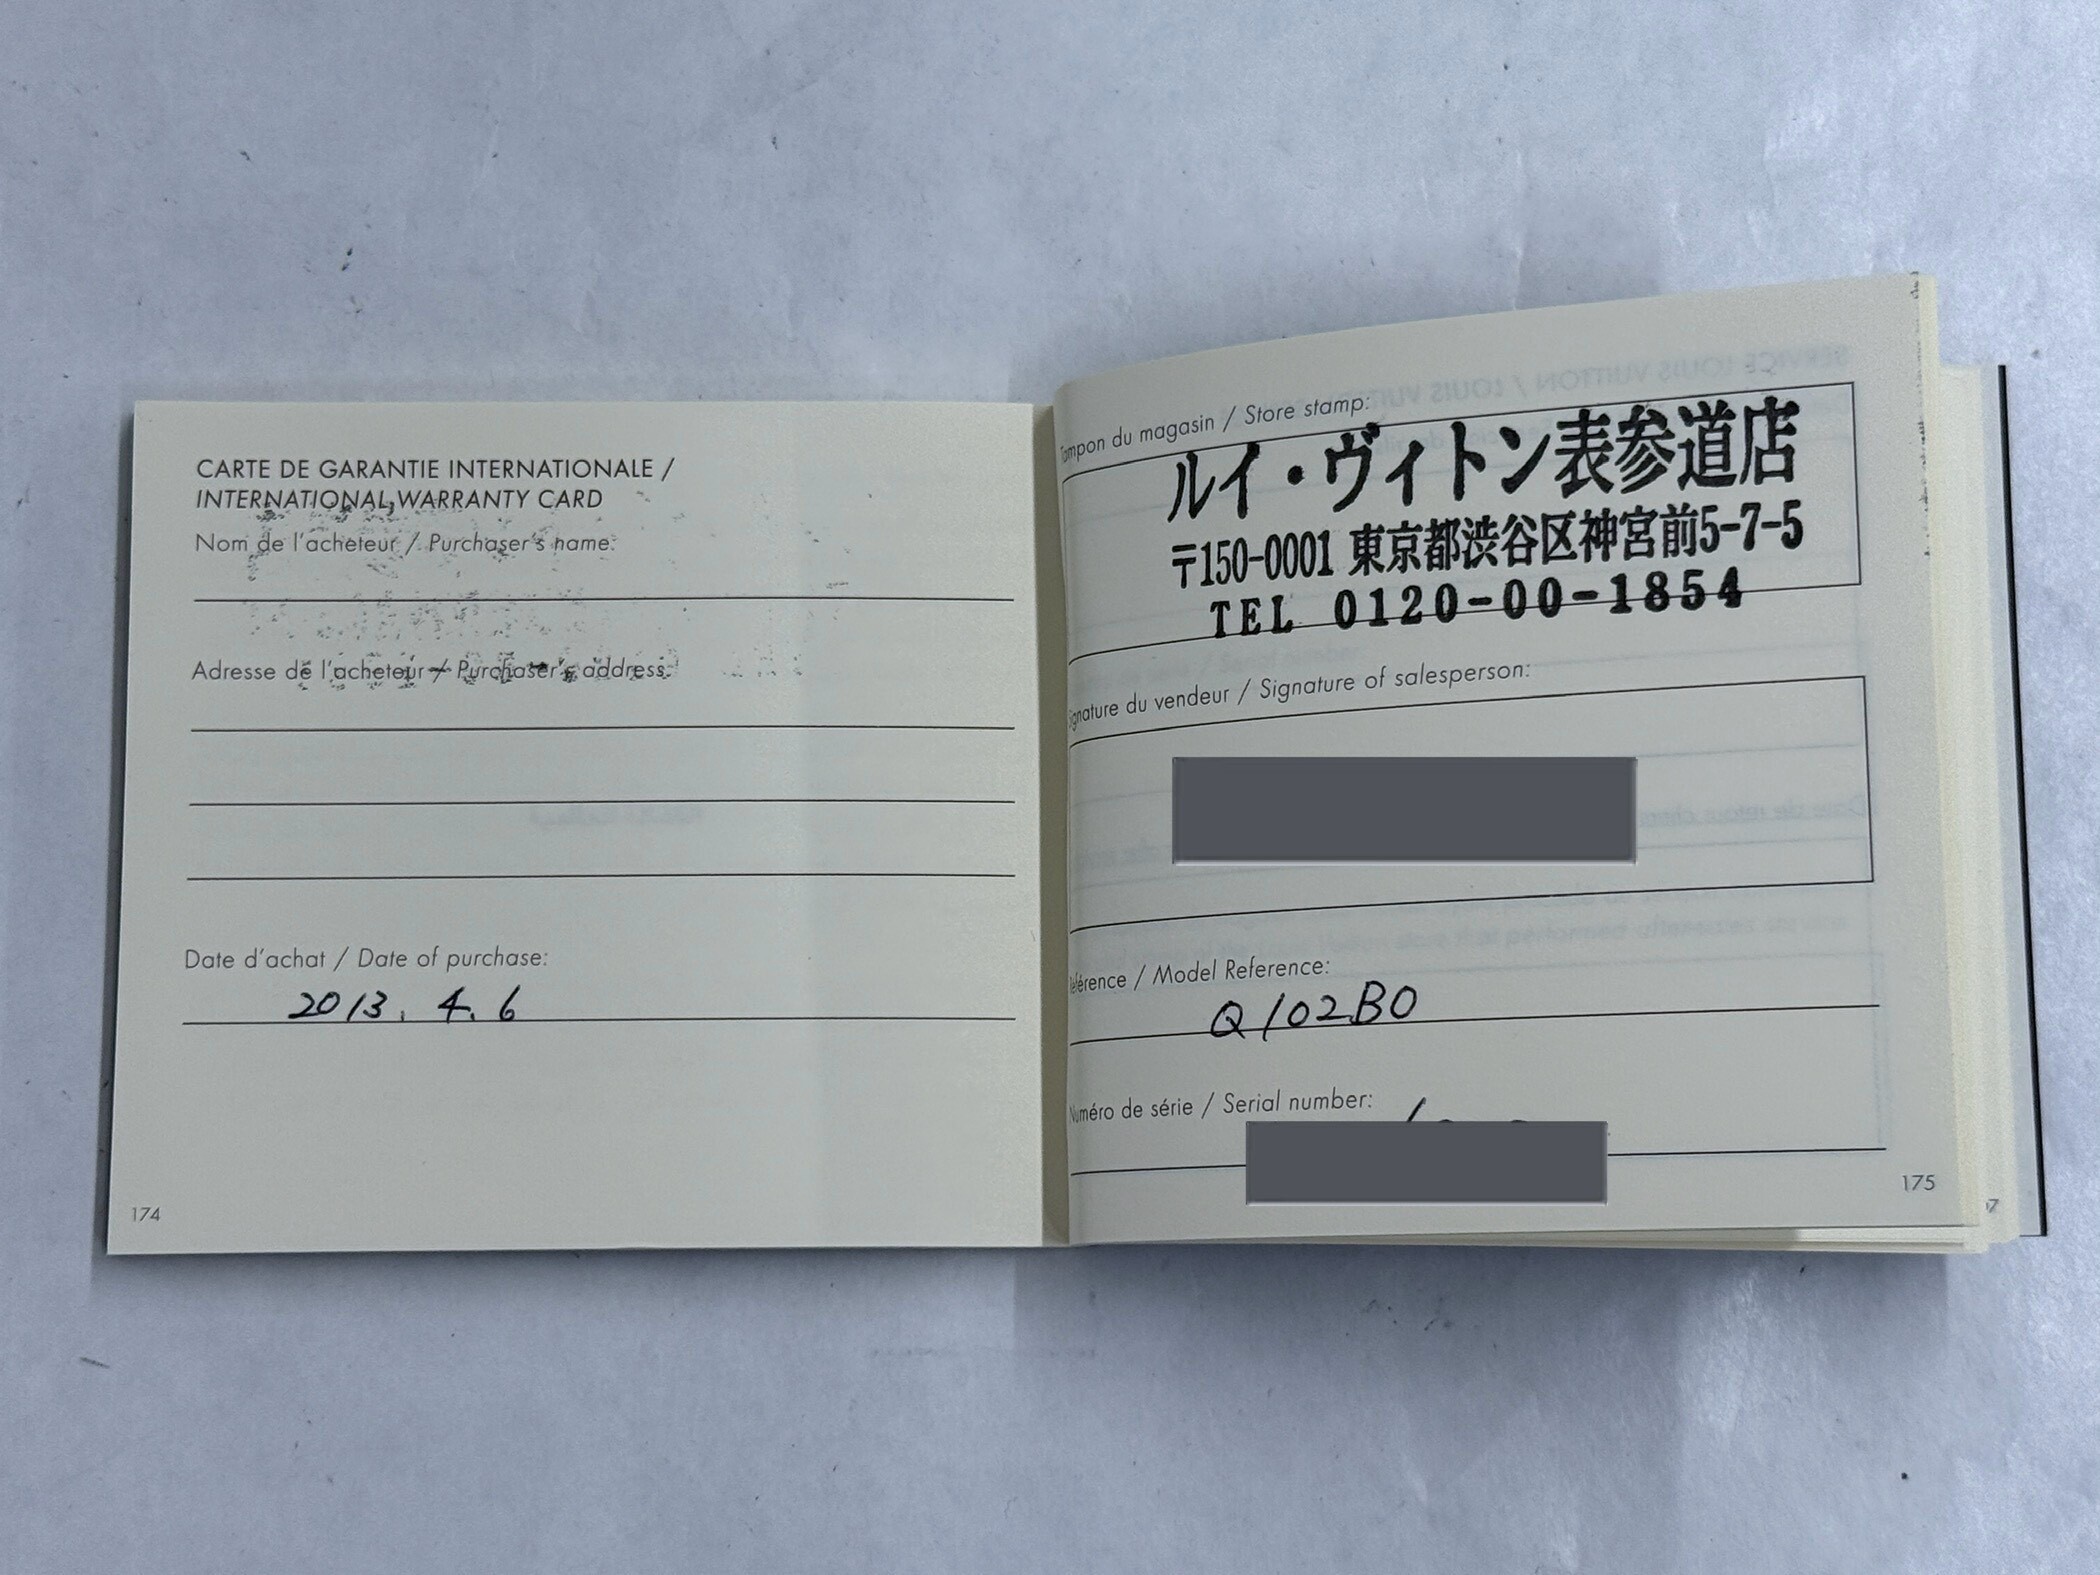 CARTE DE GARANTIE INTERNATIONALE /
INTERNATIONAL WARRANTY CARD
Nom de l'acheteur / Purchaser's name:
Adresse de l'acheteur / Purchaser's address:
Date d'achat / Date of purchase:
2013. 4. 6
174
Tampon du magasin / Store stamp:
ルイ・ヴィトン表参道店
〒150-0001 東京都渋谷区神宮前5-7-5
TEL 0120-00-1854
Signature du vendeur / Signature of salesperson:
Référence / Model Reference:
Q102B0
Numéro de série / Serial number:
175